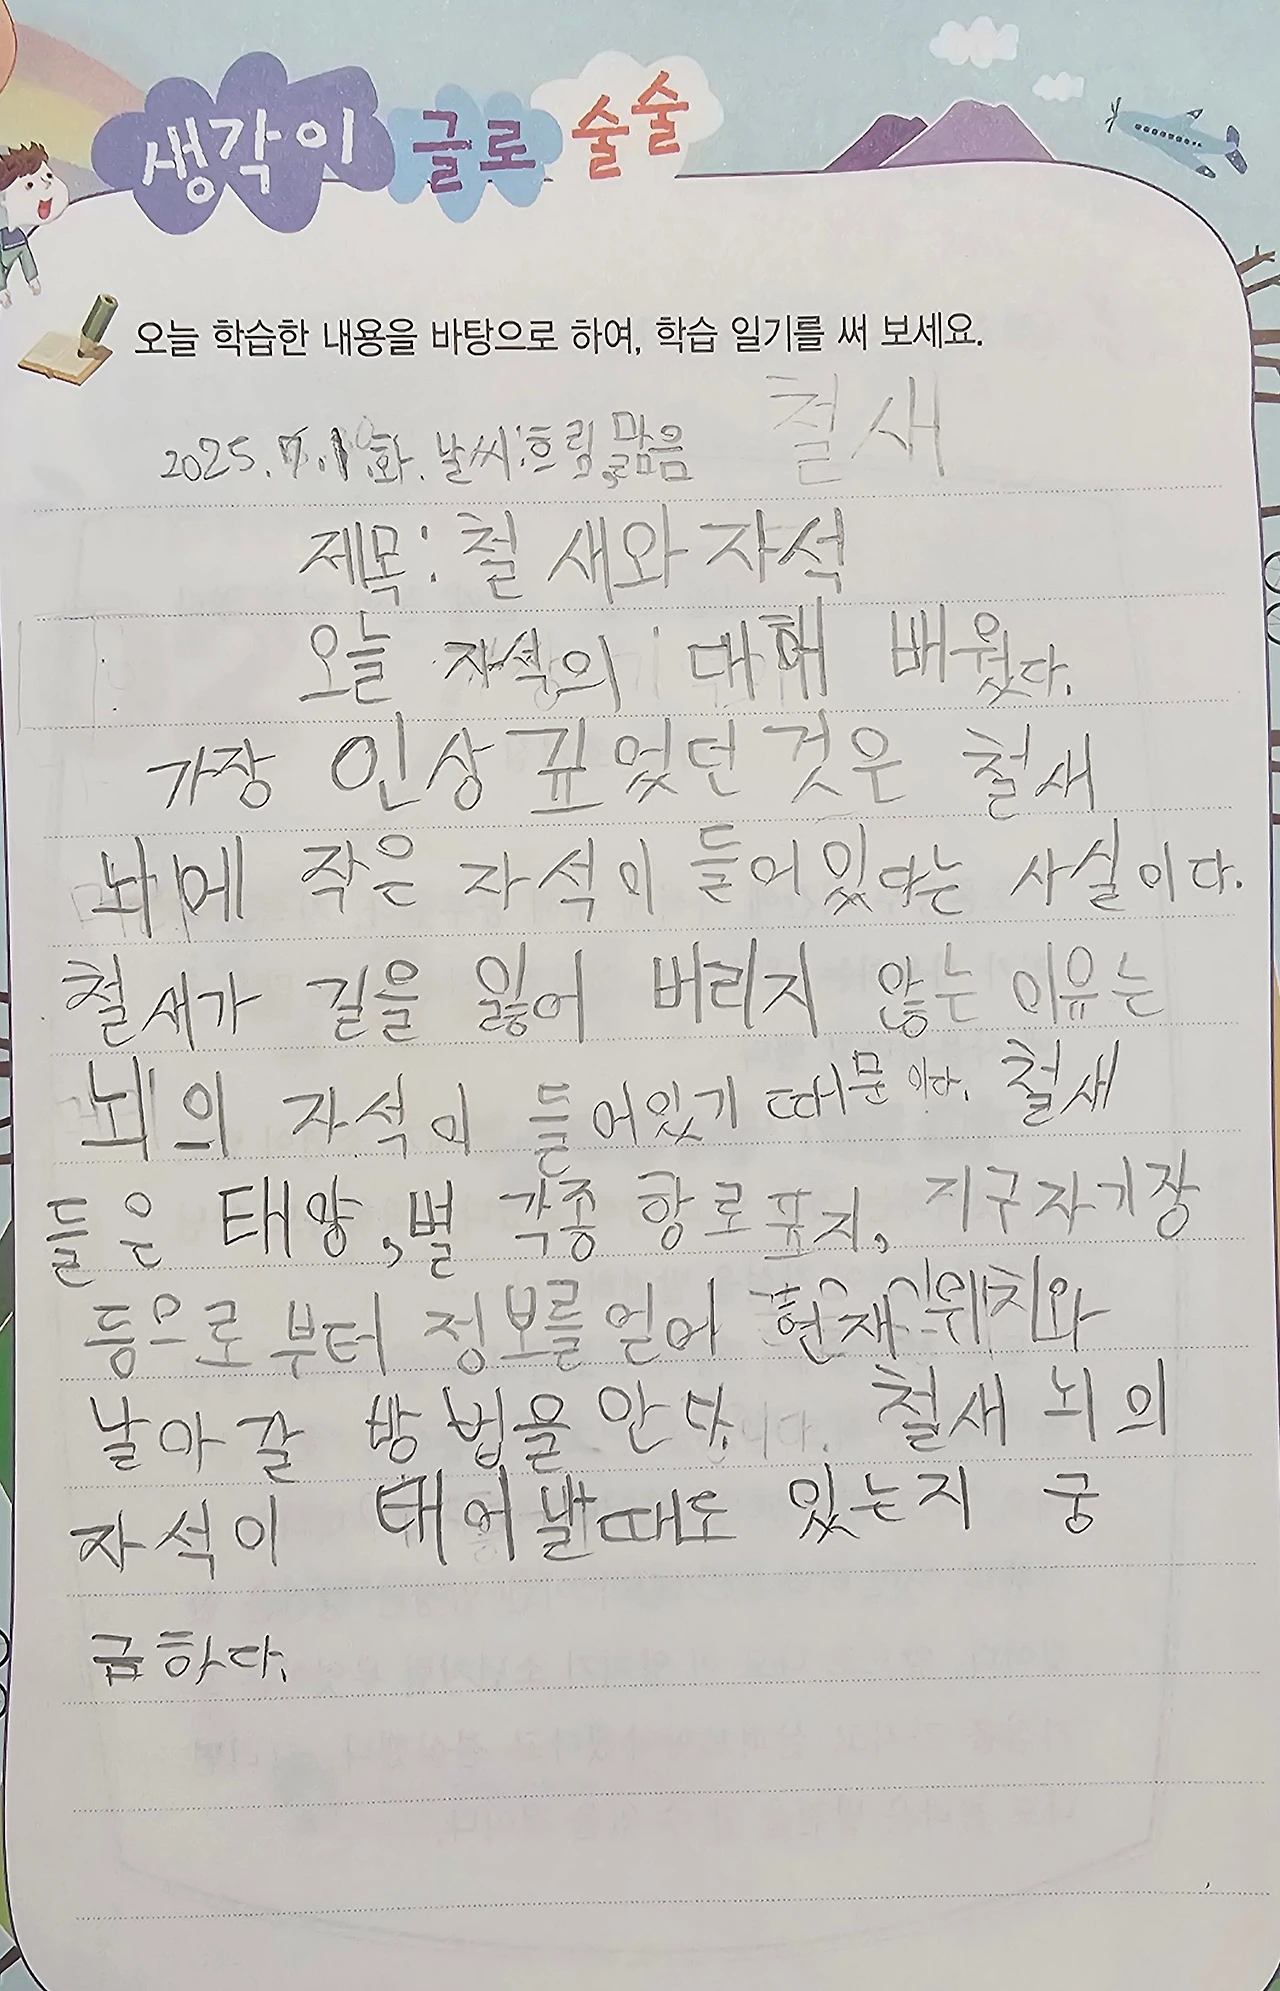 생각이 글로 술술
오늘 학습한 내용을 바탕으로 하여, 학습 일기를 써 보세요.
철새
2025.7.1 화. 날씨:흐림,맑음
제목: 철새와 자석
오늘 자석의 대해 배웠다.
가장 인상 깊었던 것은 철새
뇌에 작은 자석이 들어있다는 사실이다.
철새가 길을 잃어 버리지 않는 이유는
뇌의 자석이 들어있기 때문이다. 철새
들은 태양, 별 각종 항로표지, 지구자기장
등으로 부터 정보를 얻어 현재 위치와
날아갈 방법을 안다. 철새 뇌의
자석이 태어날때도 있는지 궁
금하다.